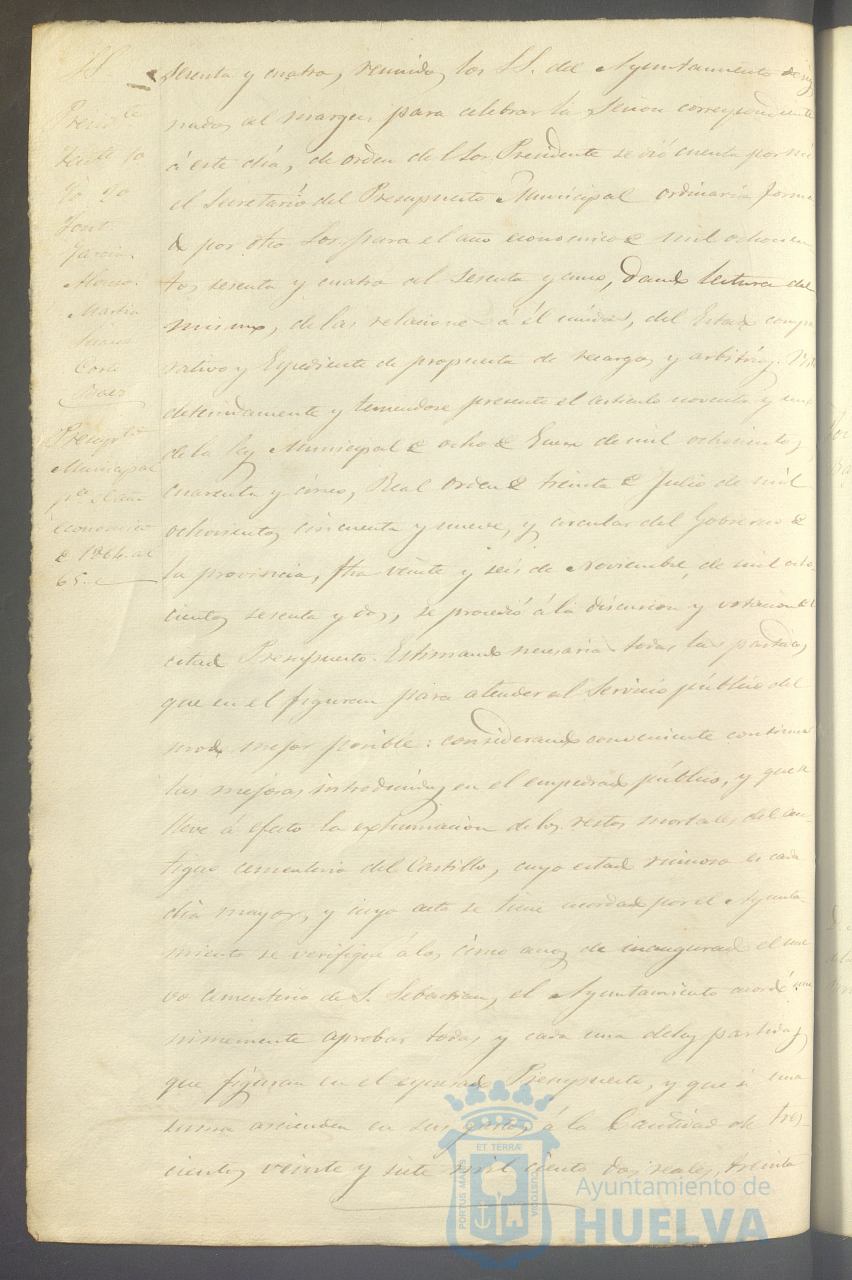 SS.
Presid.te
Yo
Font.
Garcia.
Alonso.
Martin
Suarez
Corte
Presup.to
Municipal
p.a el año
económico
de 1864 al
65.
sesenta y cuatro, reunidos los SS. del Ayuntamiento
nados al margen para celebrar la Sesion correspondiente
á este dia, de orden del Sor. Presidente se dió cuenta por mi
el Secretario del Presupuesto Municipal ordinario forma
do por dho Sor. para el año economico de mil ochocien
tos sesenta y cuatro al sesenta y cinco, dando lectura del
mismo, de las relaciones á él unidas, del Estado compa
rativo y Expediente de propuesta de recargos y arbitrios.
detenidamente y teniendose presente el articulo noventa y uno
de la ley Municipal de ocho de Enero de mil ochocientos
cuarenta y cinco, Real orden de treinta de Julio de mil
ochocientos cincuenta y nueve, y circular del Gobierno de
la provincia, fha veinte y seis de Noviembre de mil ocho-
cientos sesenta y dos, se procedió á la discusion y votacion del
citado Presupuesto. Estimando necesarias todas las partidas
que en el figuran para atender al Servicio público del
modo mejor posible: considerando conveniente continuar
las mejoras introducidas en el empedrado público, y que se
lleve á efecto la exhumacion de los restos mortales del an-
tiguo cementerio del Castillo, cuyo estado ruinoso es cada
dia mayor, y cuyo acto se tiene acordado por el Ayunta-
miento se verifique á los cinco años de inaugurado el nue
vo cementerio de S. Sebastian, el Ayuntamiento acordó una
nimemente aprobar todas y cada una de las partidas
que figuran en el espresado Presupuesto, y que á una
suma ascienden en sus gastos á la Cantidad de tres-
cientos veinte y siete mil ciento dos reales, treinta
PORTUS MARIS
ET TERRÆ
CUSTODIA
Ayuntamiento de
HUELVA